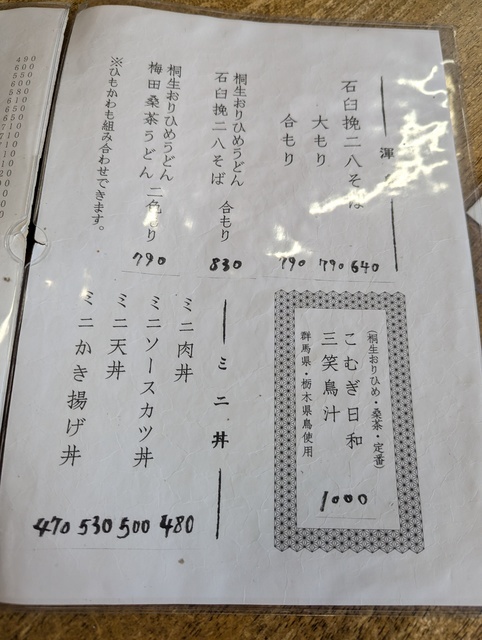 石臼挽二八そば 640
大もり 790
合もり 790
桐生おりひめうどん
石臼挽二八そば 合もり 830
桐生おりひめうどん
梅田桑茶うどん 二色もり 790
※ひもかわも組み合わせできます。
(桐生おりひめ・桑茶・定番)
こむぎ日和
三笑鳥汁
群馬県・栃木県鳥使用
1000
ミニ丼
ミニ肉丼 480
ミニソースカツ丼 500
ミニ天丼 530
ミニかき揚げ丼 470